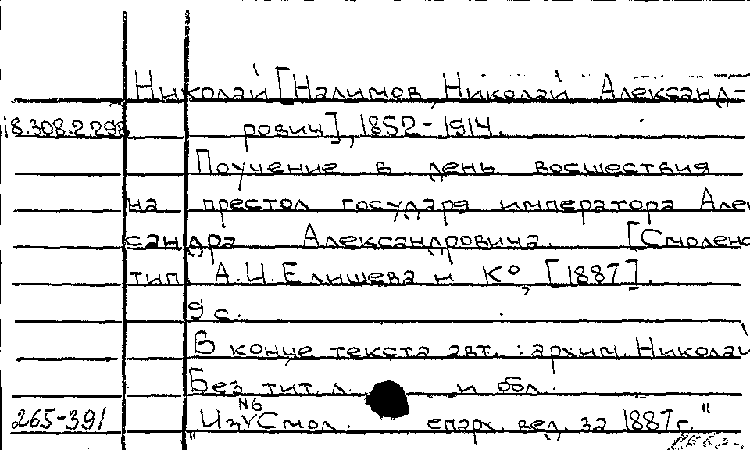 Николай [Налимов, Николай Александ-
18.308.2.298 рович], 1852-1914.
Поучение в день восшествия
на престол государя императора Алек
сандра Александровича. [Смоленс
тип. А.И. Елишева и К°, [1887].
9 с.
В конце текста авт.: архим. Николай
Без тит. л. и обл.
265-391 "Из №6 Смол. епарх. вед. за 1887г."